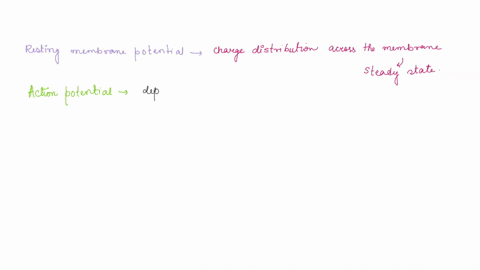 Resting membrane potential → charge distribution across the membrane
Steady state.
Action potential → dep